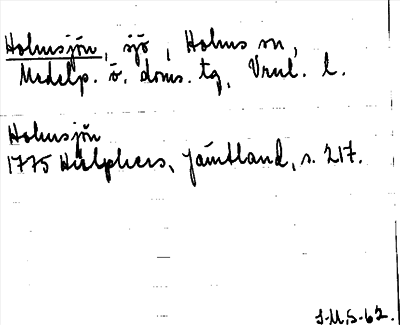 Holmsjön, sjö, Holms sn,
Medelp. ö. doms. tg, Vnul. l.
Holmsjön
1775 Hülphers, Jämtland, s. 217.